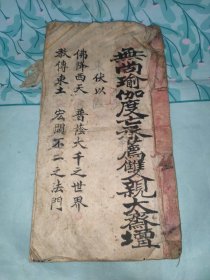 無尚瑜伽度亡薦雙親大齋壇
伏以
佛降西天 普陰大千之世界
教傳東土 宏開不二之法門